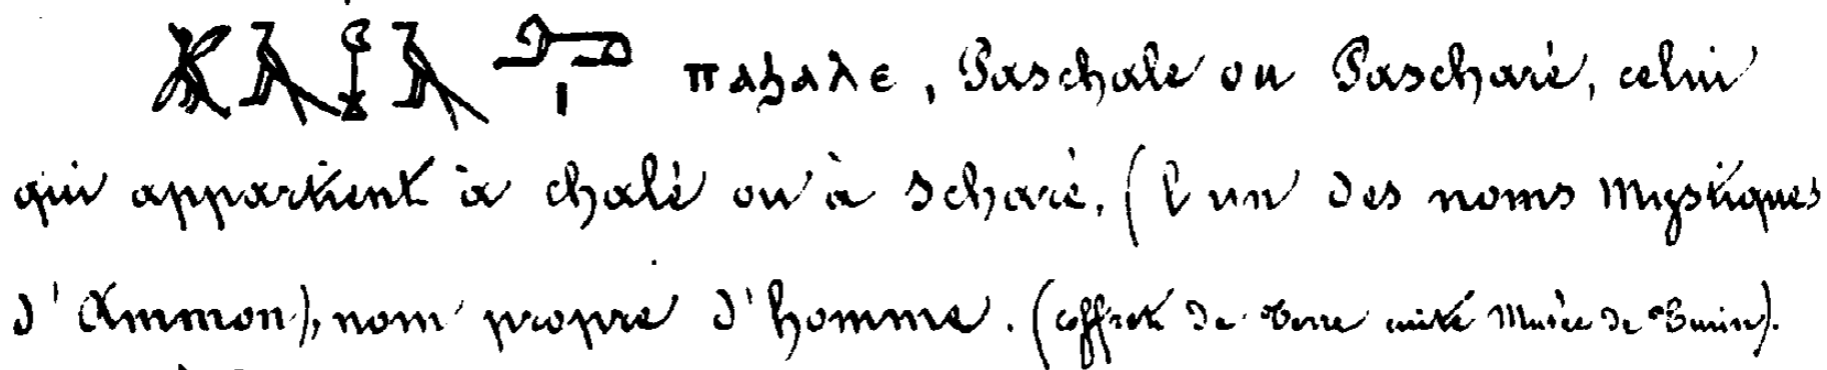 ⲡⲁϧⲁⲗⲉ, Paschale ou Pascharè, celui
qui appartient à chalè ou à scharè, (l'un des noms Mystiques
d'Ammon), nom propre d'homme. (coffret de terre cuite Musée de Turin).